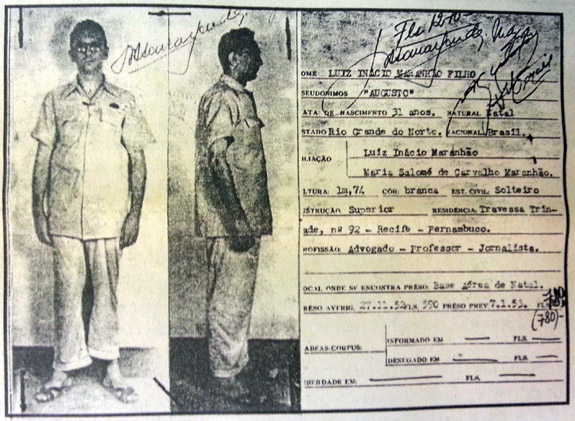 Fls 1210-
OME LUIZ INÁCIO MARANHÃO FILHO
SEUDÔNIMOS "AUGUSTO"
ATA DE NASCIMENTO 31 anos. NATURAL Natal
STADO Rio Grande do Norte. NACIONAL Brasil.
ILIAÇÃO Luiz Inácio Maranhão
Maria Salomé de Carvalho Maranhão.
LTURA: 1m,74 CÔR: branca EST. CIVIL: Solteiro
STRUÇÃO: Superior RESIDÊNCIA: Travessa Trin-
ade, nº 92 - Recife - Pernambuco.
ROFISSÃO: Advogado - Professor - Jornalista.
OCAL ONDE SE ENCONTRA PRÊSO: Base Aérea de Natal.
RÊSO AVERM. 27.11.52 FLS. 590 PRÊSO PREV. 7.1.53. FL 780
(780)-
ABEAS-CORPUS: INFORMADO EM FLS.
DENEGADO EM FLS.
IBERDADE EM: FLS.